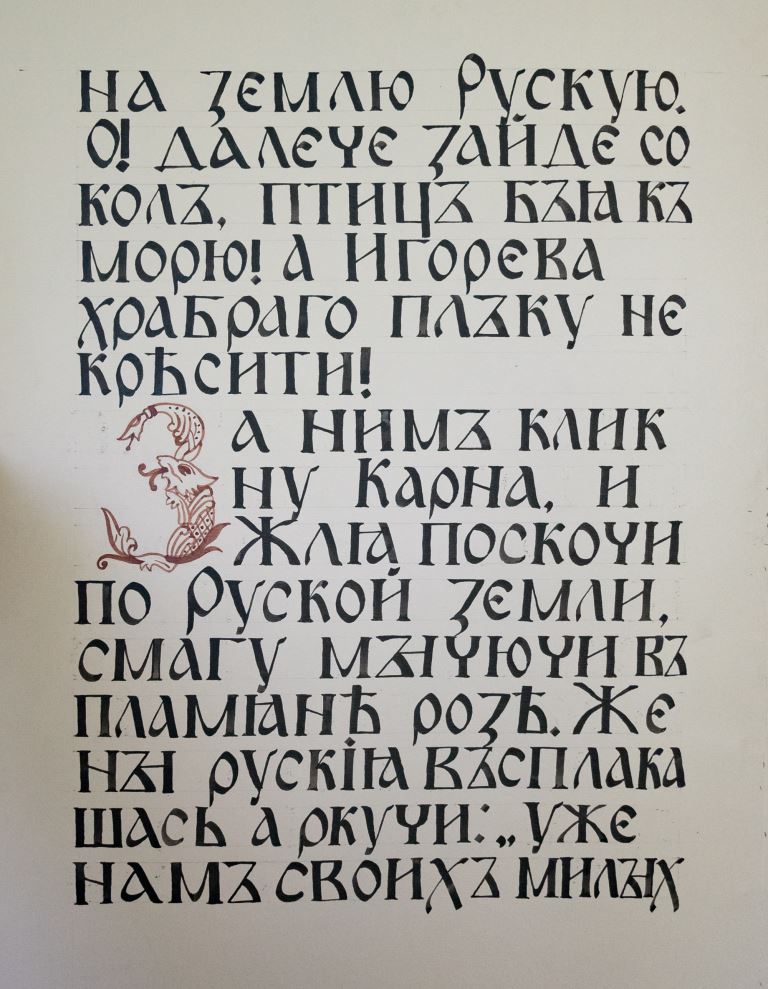 на землю Рускую.
О! далече зайде со
колъ, птиць бья къ
морю! а Игорева
храбраго плъку не
крѣсити!
За нимъ клик
ну Карна, и
Жлꙗ поскочи
по Руской земли,
смагу мꙑчючи въ
пламꙗнѣ розѣ. Же
нꙑ рускіꙗ въсплака
шась а ркучи: „уже
намъ своихъ милꙑх